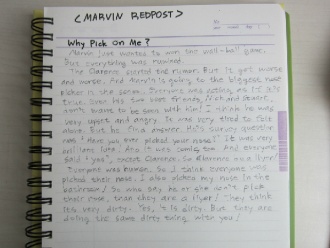 < MARVIN REDPOST >
Why Pick On Me ?
Marvin just wanted to win the wall-ball game.
But everything was ruined.
The Clarence started the rumor. But it got worse
and worse. And Marvin is going to the biggest nose
picker is the school. Everyone was acting as if it is
true. Even his two best friends, Nick and Stuart,
don't want to be seen with him! I think he was
very upset and angry. It was very tired to felt
alone. But he find answer. He's survey question
was 'Have you ever picked your nose?' It was very
brilliant idea. And it was coming too. And everyone
said 'yes', except Clarence. So Clarence is a liyer!
Everyone was human. So I think everyone was
picked their nose. I also picked my nose in the
bathroom! So who say he or she don't pick
their nose, than they are a liyer! They think
it is very dirty. Yes, it is dirty. But they are
doing the same dirty thing with you!